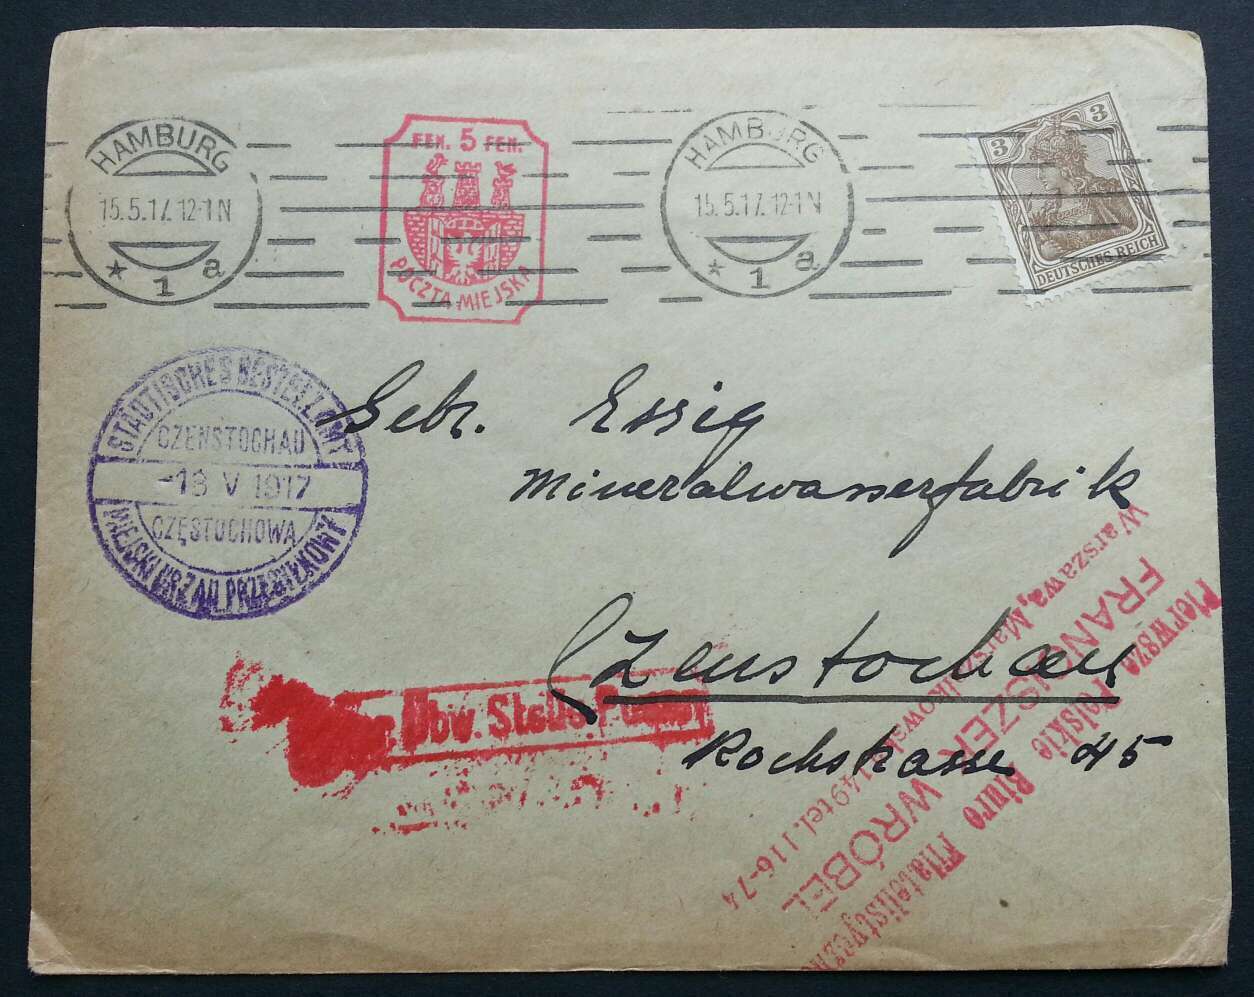 HAMBURG
15.5.17. 12-1N
* 1 a
FEN. 5 FEN.
POCZTA MIEJSKA
HAMBURG
15.5.17. 12-1N
* 1 a
3 3
DEUTSCHES REICH
STÄDTISCHES BESTELLAMT
CZENSTOCHAU
-18 V 1917
CZĘSTOCHOWA
MIEJSKI URZĄD PRZESYŁKOWY
Gebr. Essig
Mineralwasserfabrik
Czenstochau
Rochstrasse 45
Pierwsze Polskie Biuro Filatelistyczne
FRANCISZEK WRÓBEL
Warszawa, Marszałkowska 149 tel. 116-74